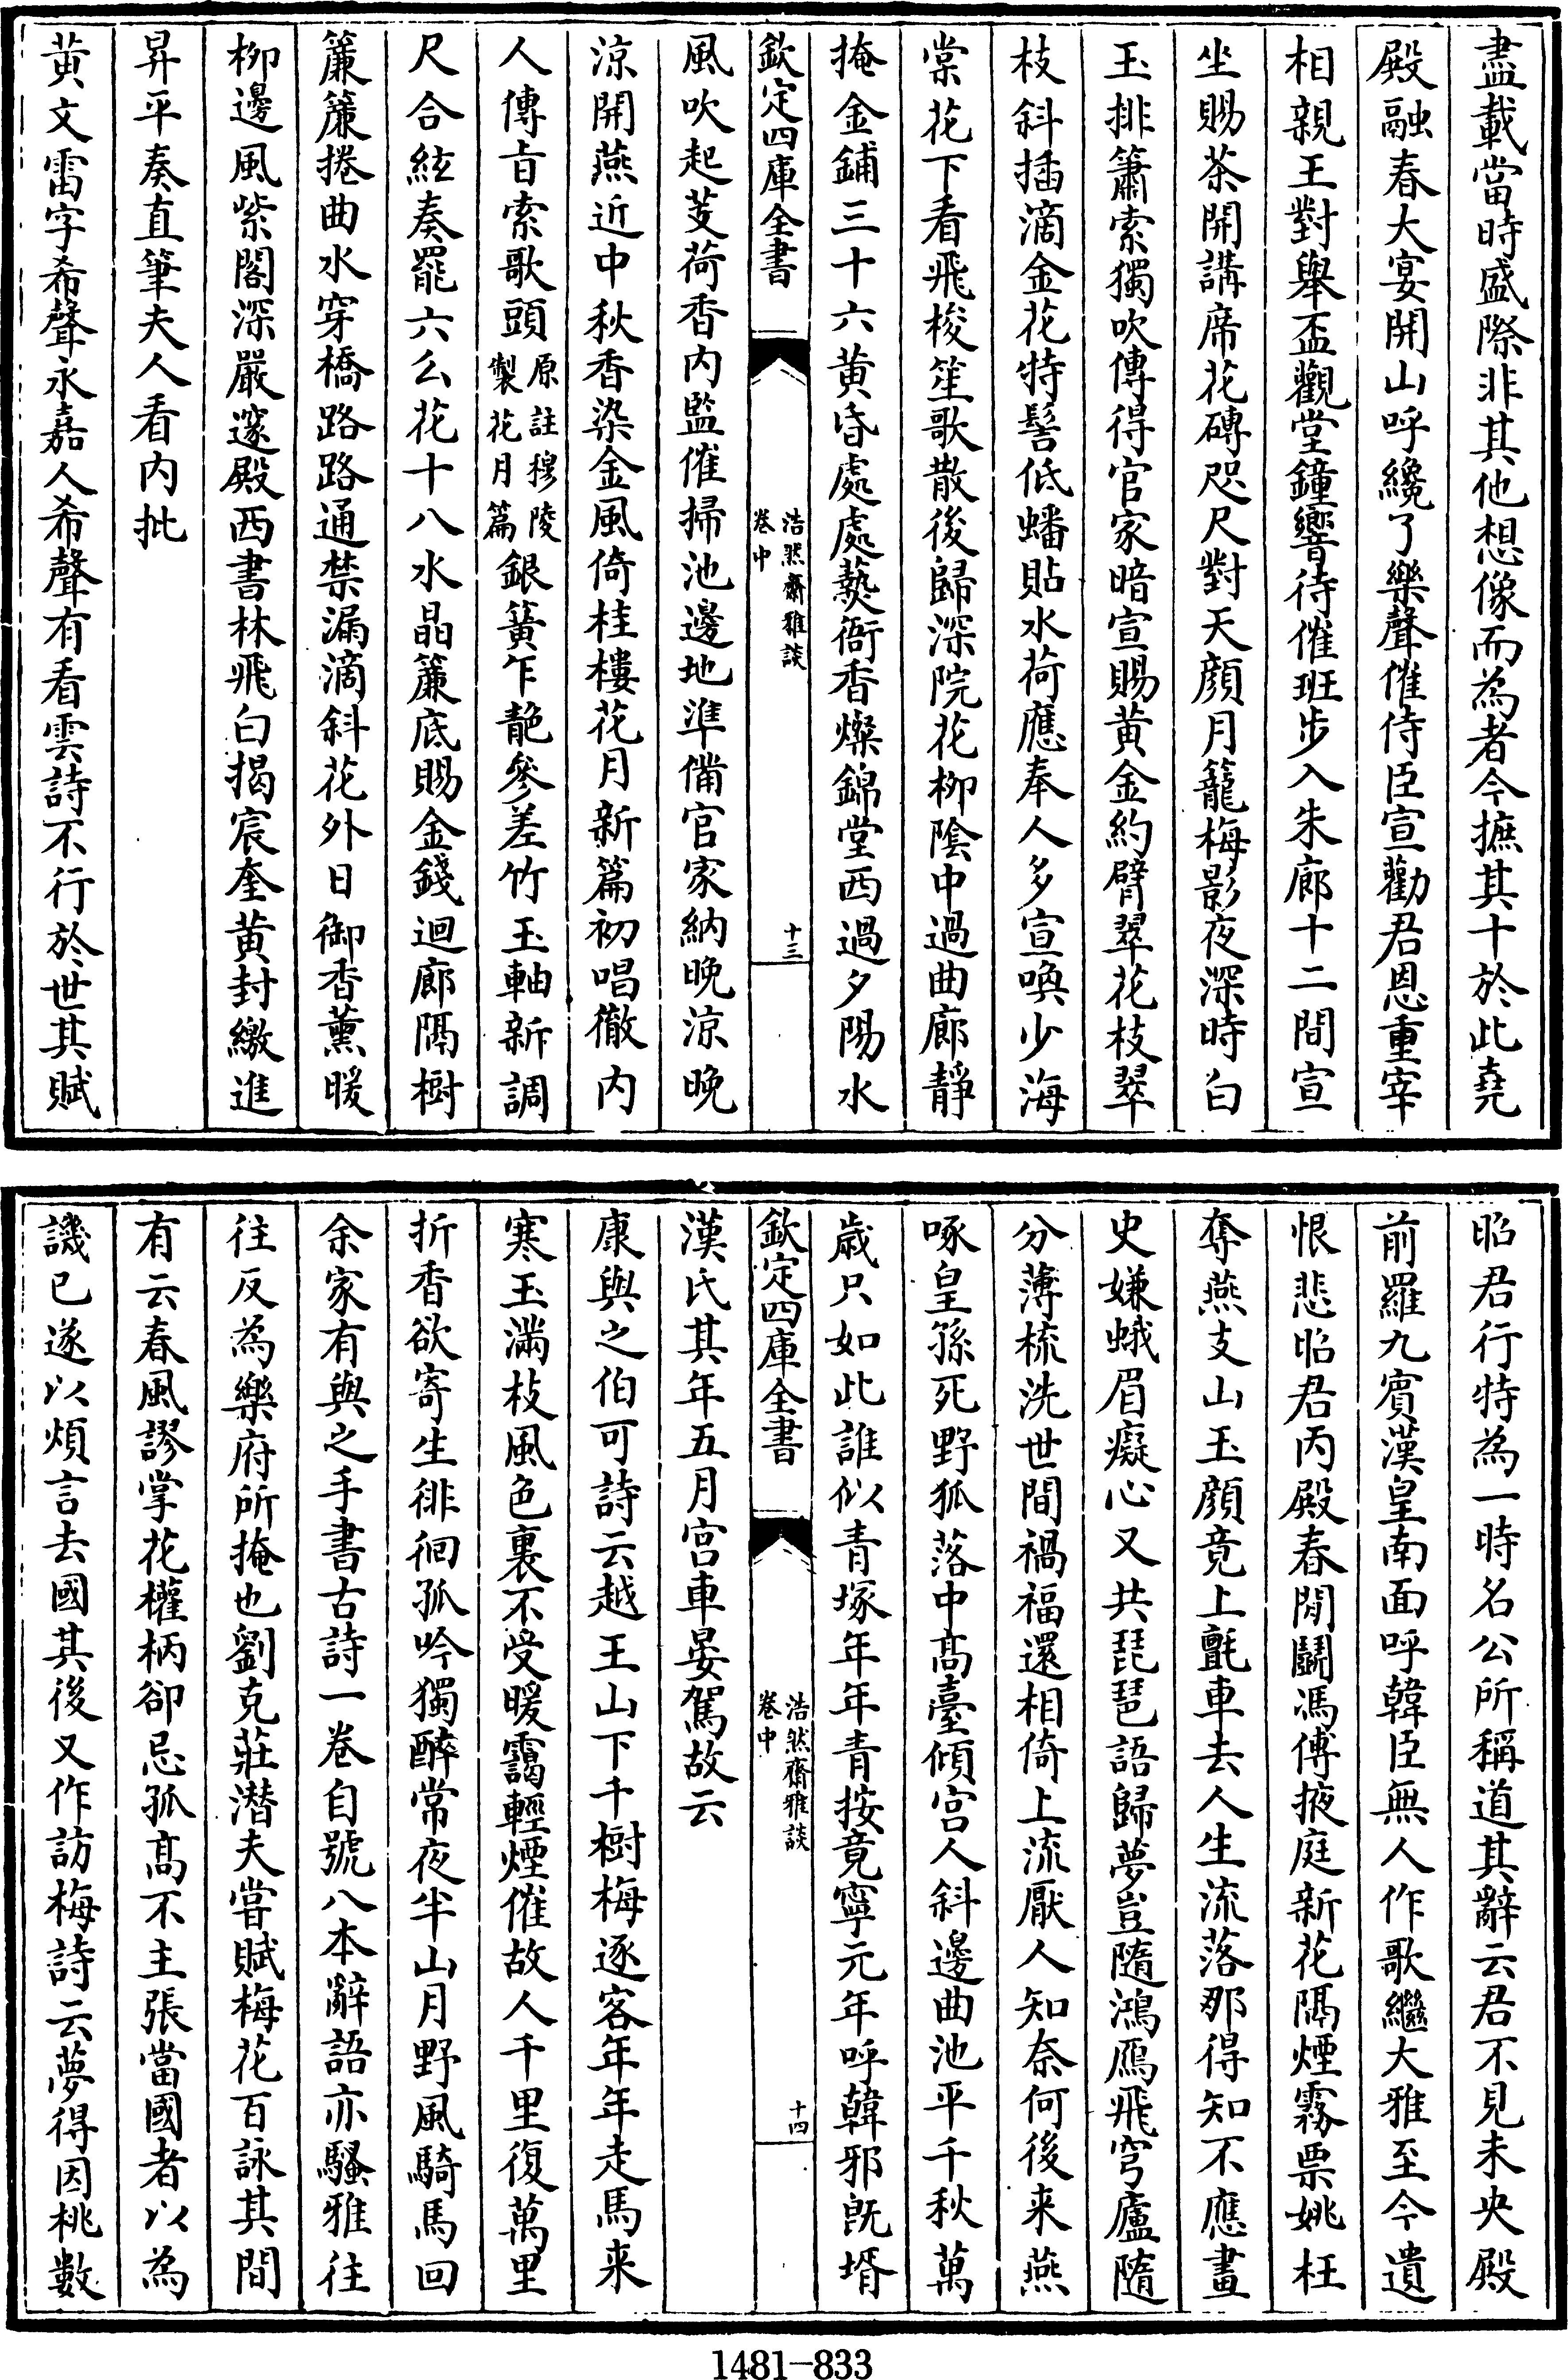 盡載當時盛際非其他想像而為者今摭其十於此堯
殿融春大宴開山呼纔了樂聲催侍臣宣勸君恩重宰
相親王對舉盃觀堂鐘響待催班步入朱廊十二間宣
坐賜茶開講席花磚咫尺對天顔月籠梅影夜深時白
玉排簫索獨吹傳得官家暗宣賜黄金約臂翠花枝翠
枝斜插滴金花特髻低蟠貼水荷應奉人多宣喚少海
棠花下看飛梭笙歌散後歸深院花柳陰中過曲廊靜
掩金鋪三十六黄昏處處爇衙香燦錦堂西過夕陽水
欽定四庫全書
浩然齋雅談
卷中
十三
風吹起芰荷香内監催掃池邊地準備官家納晚涼晚
涼開燕近中秋香染金風倚桂樓花月新篇初唱徹内
人傳旨索歌頭原註穆陵製花月篇銀簧乍靘參差竹玉軸新調
尺合絃奏罷六么花十八水晶簾底賜金錢迴廊隔樹
簾簾捲曲水穿橋路路通禁漏滴斜花外日御香薰暖
柳邊風紫閣深嚴邃殿西書林飛白揭宸奎黄封繳進
昇平奏直筆夫人看内批
黄文雷字希聲永嘉人希聲有看雲詩不行於世其賦
昭君行特為一時名公所稱道其辭云君不見未央殿
前羅九賓漢皇南面呼韓臣無人作歌繼大雅至今遺
恨悲昭君丙殿春閒鬭馮傅掖庭新花隔煙霧票姚枉
奪燕支山玉顔竟上氈車去人生流落那得知不應畫
史嫌蛾眉癡心又共琵琶語歸夢豈隨鴻鴈飛穹廬隨
分薄梳洗世間禍福還相倚上流厭人知奈何後来燕
啄皇孫死野狐落中髙臺傾宫人斜邊曲池平千秋萬
歳只如此誰似青塚年年青按竟寧元年呼韓邪旣壻
欽定四庫全書
浩然齋雅談
卷中
十四
漢氏其年五月宫車晏駕故云
康與之伯可詩云越王山下千樹梅逐客年年走馬来
寒玉滿枝風色裏不受暖靄輕煙催故人千里復萬里
折香欲寄生徘徊孤吟獨醉常夜半山月野風騎馬回
余家有與之手書古詩一卷自號八本辭語亦騷雅往
往反為樂府所掩也劉克莊潛夫嘗賦梅花百詠其間
有云春風謬掌花權柄卻忌孤髙不主張當國者以為
譏已遂以煩言去國其後又作訪梅詩云夢得因桃數
1481-833